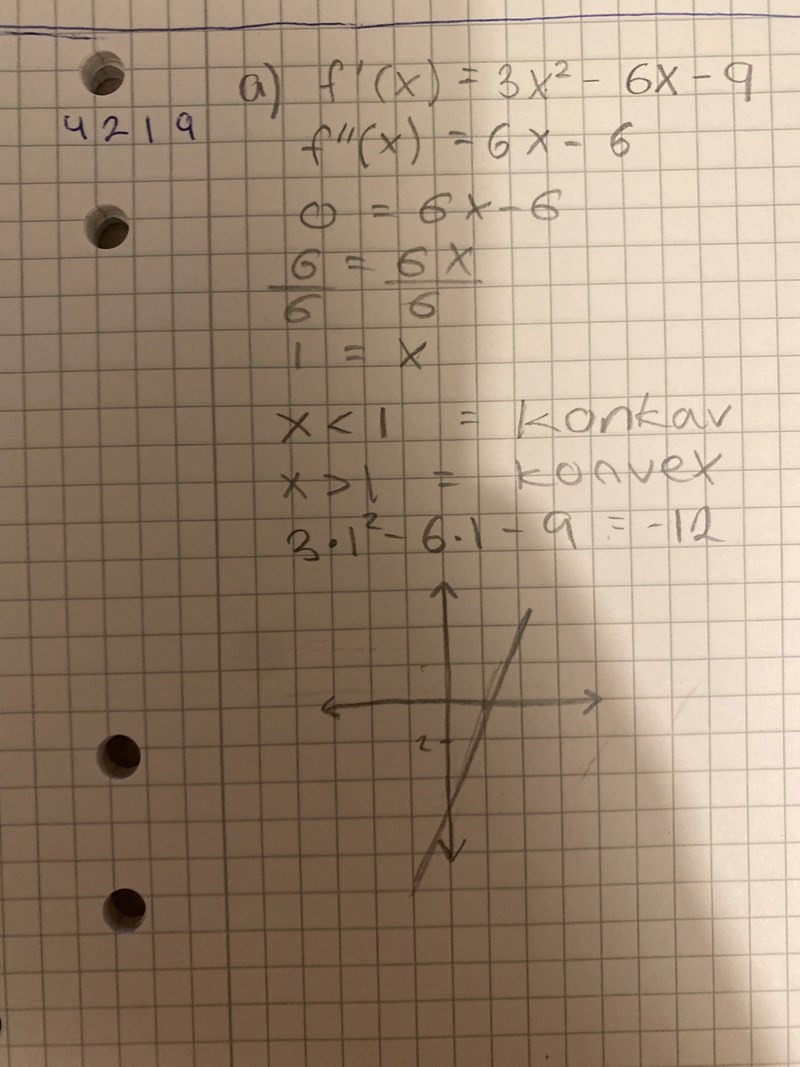 a) f'(x) = 3x² - 6x - 9
4219
f''(x) = 6x - 6
0 = 6x - 6
6/6 = 6x/6
1 = x
x < 1 = konkav
x > 1 = konvex
3·1² - 6·1 - 9 = -12
2